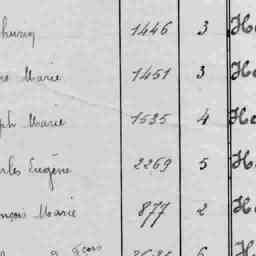 1446 3 H
Marie 1451 3 H
ph Marie 1535 4 H
rles Eugène 2269 5 H
nçois Marie 877 2 H
Fcois 6 H